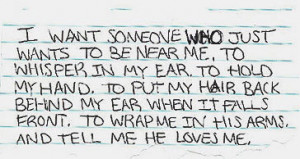 I WANT SOMEONE WHO JUST
WANTS TO BE NEAR ME. TO
WHISPER IN MY EAR. TO HOLD
MY HAND. TO PUT MY HAIR BACK
BEHIND MY EAR WHEN IT FALLS
FRONT. TO WRAP ME IN HIS ARMS.
AND TELL ME HE LOVES ME.